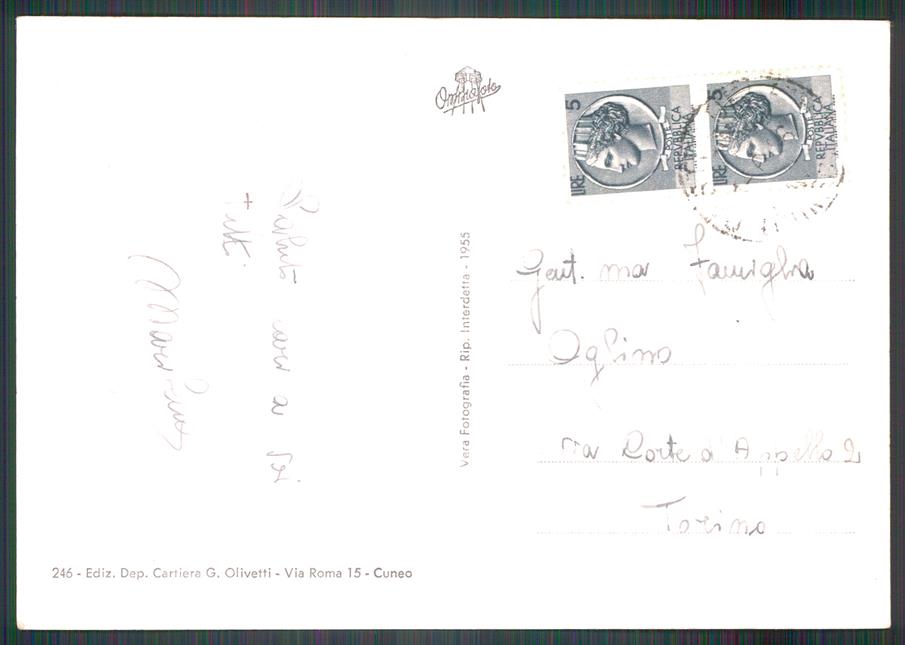 Omniafoto
5
LIRE
REPVBBLICA
ITALIANA
5
LIRE
REPVBBLICA
ITALIANA
Saluti cari a
tutti
Vera Fotografia - Rip. Interdetta - 1955
Gent. ma Famiglia
Oglino
Via Corte d'Appello 2
Torino
246 - Ediz. Dep. Cartiera G. Olivetti - Via Roma 15 - Cuneo